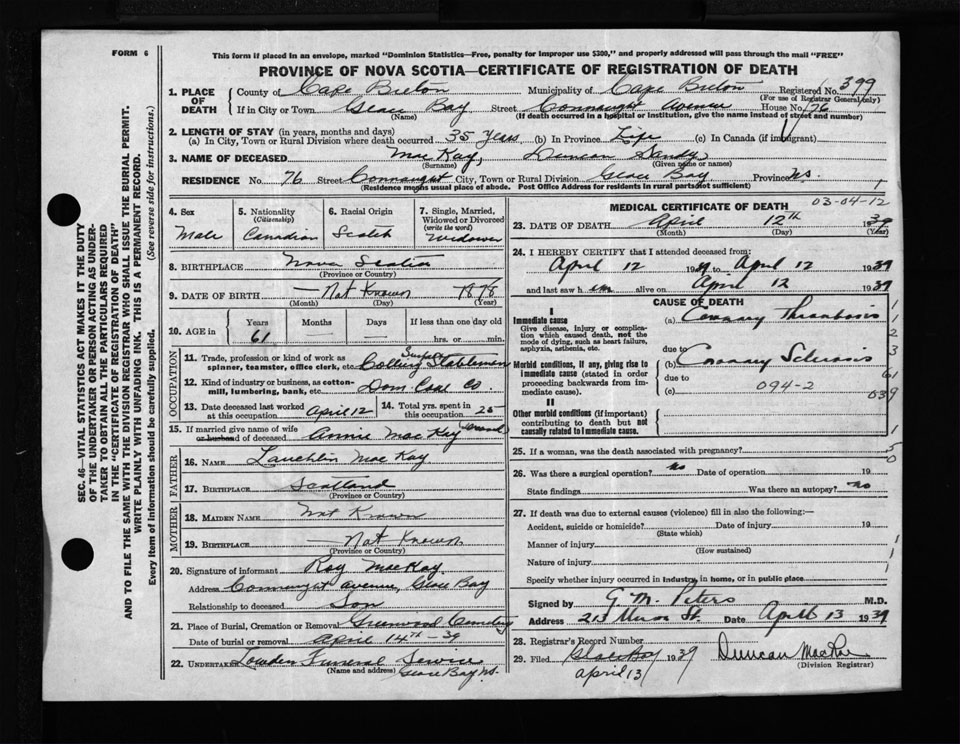 FORM 6
This form if placed in an envelope, marked "Dominion Statistics—Free, penalty for improper use $300," and properly addressed will pass through the mail "FREE"
PROVINCE OF NOVA SCOTIA—CERTIFICATE OF REGISTRATION OF DEATH
SEC. 46—VITAL STATISTICS ACT MAKES IT THE DUTY
OF THE UNDERTAKER OR PERSON ACTING AS UNDER-
TAKER TO OBTAIN ALL THE PARTICULARS REQUIRED
IN THE "CERTIFICATE OF REGISTRATION OF DEATH"
AND TO FILE THE SAME WITH THE DIVISION REGISTRAR WHO SHALL ISSUE THE BURIAL PERMIT.
WRITE PLAINLY WITH UNFADING INK. THIS IS A PERMANENT RECORD.
Every item of information should be carefully supplied. (See reverse side for instructions.)
1. PLACE OF DEATH
County of Cape Breton Municipality of Cape Breton Registered No. 399
(For use of Registrar General only)
If in City or Town Glace Bay Street Connaught Avenue House No. 76
(Name) (If death occurred in a hospital or institution, give the name instead of street and number)
2. LENGTH OF STAY (in years, months and days)
(a) In City, Town or Rural Division where death occurred 35 Years (b) In Province Life (c) In Canada (if immigrant)
3. NAME OF DECEASED MacKay, Duncan Sandy
(Surname) (Given name or names)
RESIDENCE No. 76 Street Connaught City, Town or Rural Division Glace Bay Province NS. 1
(Residence means usual place of abode. Post Office Address for residents in rural parts not sufficient)
4. Sex
Male
5. Nationality
(Citizenship)
Canadian
6. Racial Origin
Scotch
7. Single, Married,
Widowed or Divorced
(write the word)
Widower
8. BIRTHPLACE Nova Scotia
(Province or Country)
9. DATE OF BIRTH Not Known 1878
(Month) (Day) (Year)
10. AGE in
Years Months Days If less than one day old
61 hrs. or min.
OCCUPATION
11. Trade, profession or kind of work as
spinner, teamster, office clerk, etc. Colliery Surface Stableman
12. Kind of industry or business, as cotton-
mill, lumbering, bank, etc. Dom. Coal Co.
13. Date deceased last worked
at this occupation April 12
14. Total yrs. spent in
this occupation 25
15. If married give name of wife
or husband of deceased Annie MacKay
FATHER
16. NAME Lauchlin MacKay
17. BIRTHPLACE Scotland
(Province or Country)
MOTHER
18. MAIDEN NAME Not Known
19. BIRTHPLACE Not Known
(Province or Country)
20. Signature of informant Roy MacKay
Address Connaught avenue, Glace Bay
Relationship to deceased Son
21. Place of Burial, Cremation or Removal Greenwood Cemetery
Date of burial or removal April 14th - 39
22. UNDERTAKER Lowden Funeral Service
(Name and address) Glace Bay NS.
MEDICAL CERTIFICATE OF DEATH
03-04-12
23. DATE OF DEATH April 12th 1939
(Month) (Day) (Year)
24. I HEREBY CERTIFY that I attended deceased from:
April 12 1939 to April 12 1939
and last saw him alive on April 12 1939
CAUSE OF DEATH
I
Immediate cause
Give disease, injury or complica-
tion which caused death, not the
mode of dying, such as heart failure,
asphyxia, asthenia, etc.
(a) Coronary Thrombosis 1
2
due to 3
Morbid conditions, if any, giving rise to
immediate cause (stated in order
proceeding backwards from im-
mediate cause).
(b) Coronary Sclerosis
61
due to 094-2
(c) 039
II
Other morbid conditions (if important)
contributing to death but not
causally related to immediate cause.
1
25. If a woman, was the death associated with pregnancy? 5
0
26. Was there a surgical operation? no Date of operation 19
State findings Was there an autopsy? no
27. If death was due to external causes (violence) fill in also the following:—
Accident, suicide or homicide? Date of injury 19
(State which)
Manner of injury 1
(How sustained)
Nature of injury 1
Specify whether injury occurred in industry, in home, or in public place
Signed by G. M. Peters M.D.
Address St. Date April 13 1939
28. Registrar's Record Number
29. Filed Glace Bay 1939 Duncan MacRae
April 13 (Division Registrar)